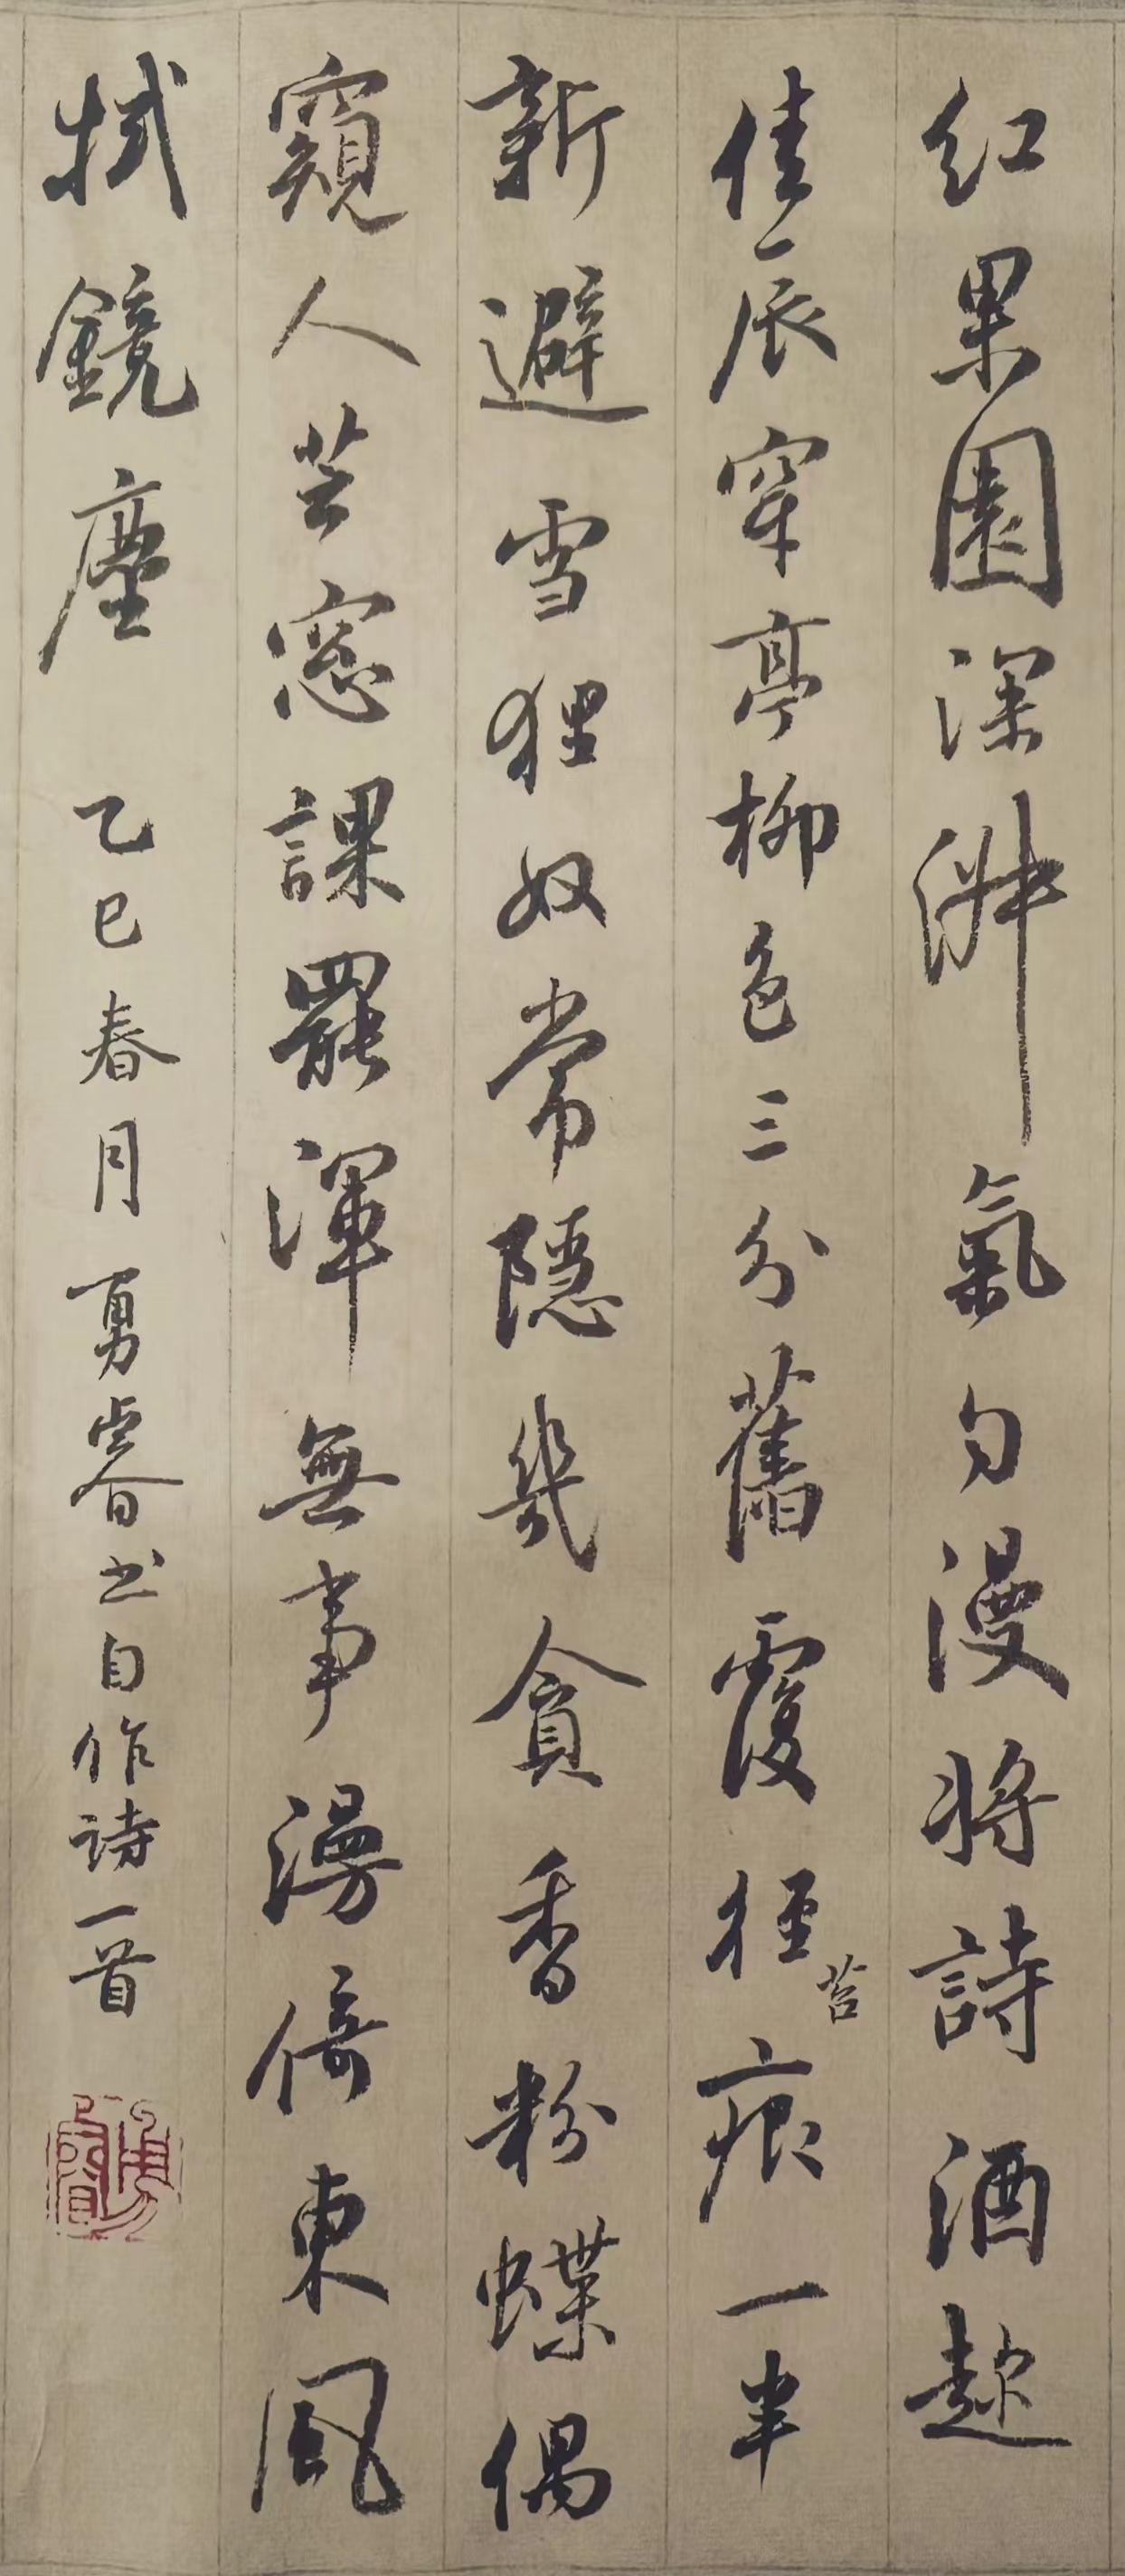 红果園深淑氣勻漫將詩酒趁
佳辰穿亭柳色三分舊覆徑苔痕一半
新避雪狸奴常隱幾貪香粉蝶偶
窺人芸窓課罷渾無事漫倚東風
拭鏡塵 乙巳春月勇睿书自作诗一首
勇睿